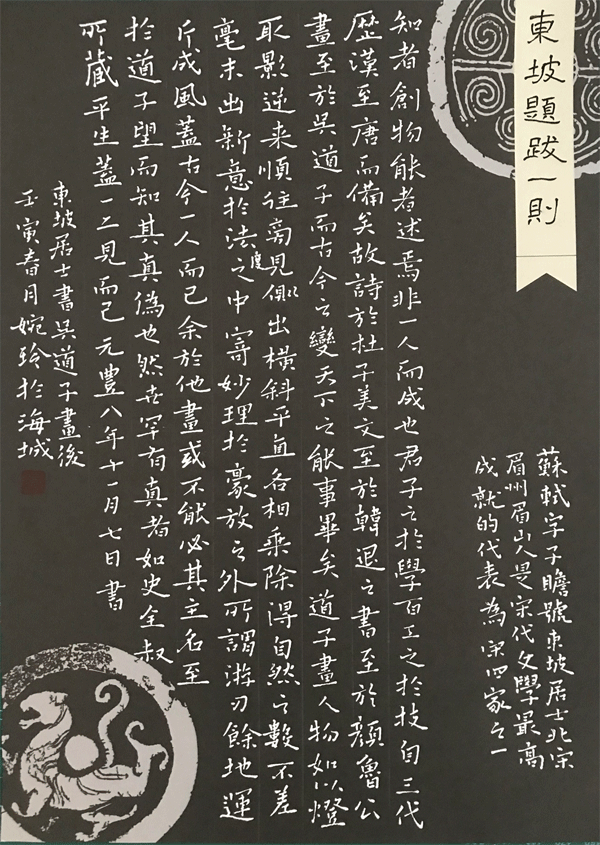 東坡題跋一則
蘇軾字子瞻號東坡居士北宋
眉州眉山人是宋代文學最高
成就的代表為宋四家之一
知者創物能者述焉非一人而成也君子之於學百工之於技自三代
歷漢至唐而備矣故詩於杜子美文至於韓退之書至於顏魯公
畫至於吳道子而古今之變天下之能事畢矣道子畫人物如以燈
取影逆来順往旁見側出橫斜平直各相乘除得自然之數不差
毫末出新意於法度之中寄妙理於豪放之外所謂游刃餘地運
斤成風蓋古今一人而已余於他畫或不能必其主名至
於道子望而知其真偽也然世罕有真者如史全叔
所藏平生蓋一二見而已元豐八年十一月七日書
東坡居士書吳道子畫後
壬寅春月婉玲於海城